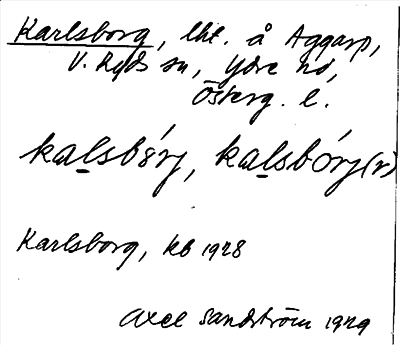 Karlsborg, lht. å Aggarp,
V. Ryds sn, Ydre hd,
Österg. l.
kalsbórj, kalsbórj(r)
Karlsborg, kb 1928
Axel Sandström 1929